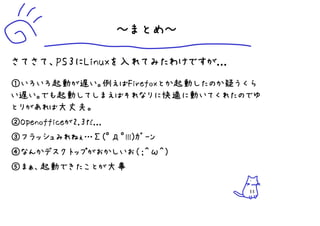 ～まとめ～
さてさて、PS3にLinuxを入れてみたわけですが...
①いろいろ起動が遅い。例えばFirefoxとか起動したのか疑うくら
い遅い。でも起動してしまえばそれなりに快適に動いてくれたのでゆ
とりがあれば大丈夫。
②Openofficeが2.3だ...
③フラッシュみれねぇ…Σ(ﾟДﾟ|||)ｶﾞｰﾝ
④なんかデスクトップがおかしいお(；^ω^)
⑤まぁ、起動できたことが大事